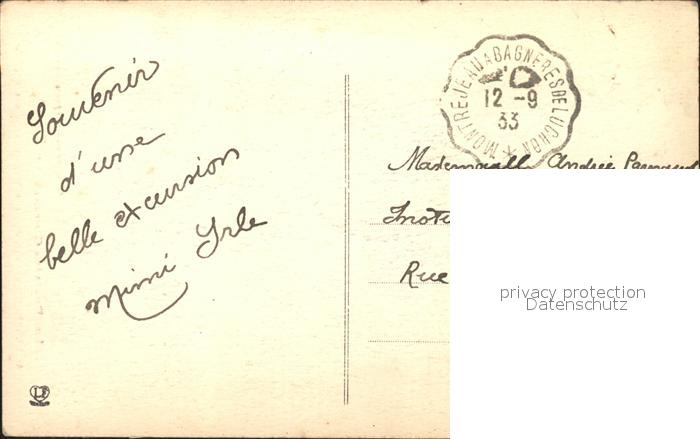 Souvenir
d'une
belle excursion
Mimi Yrle
MONTREJEAU A BAGNERES DE LUCHON
12 - 9
33
Mademoiselle Andrée
Rue
privacy protection
Datenschutz